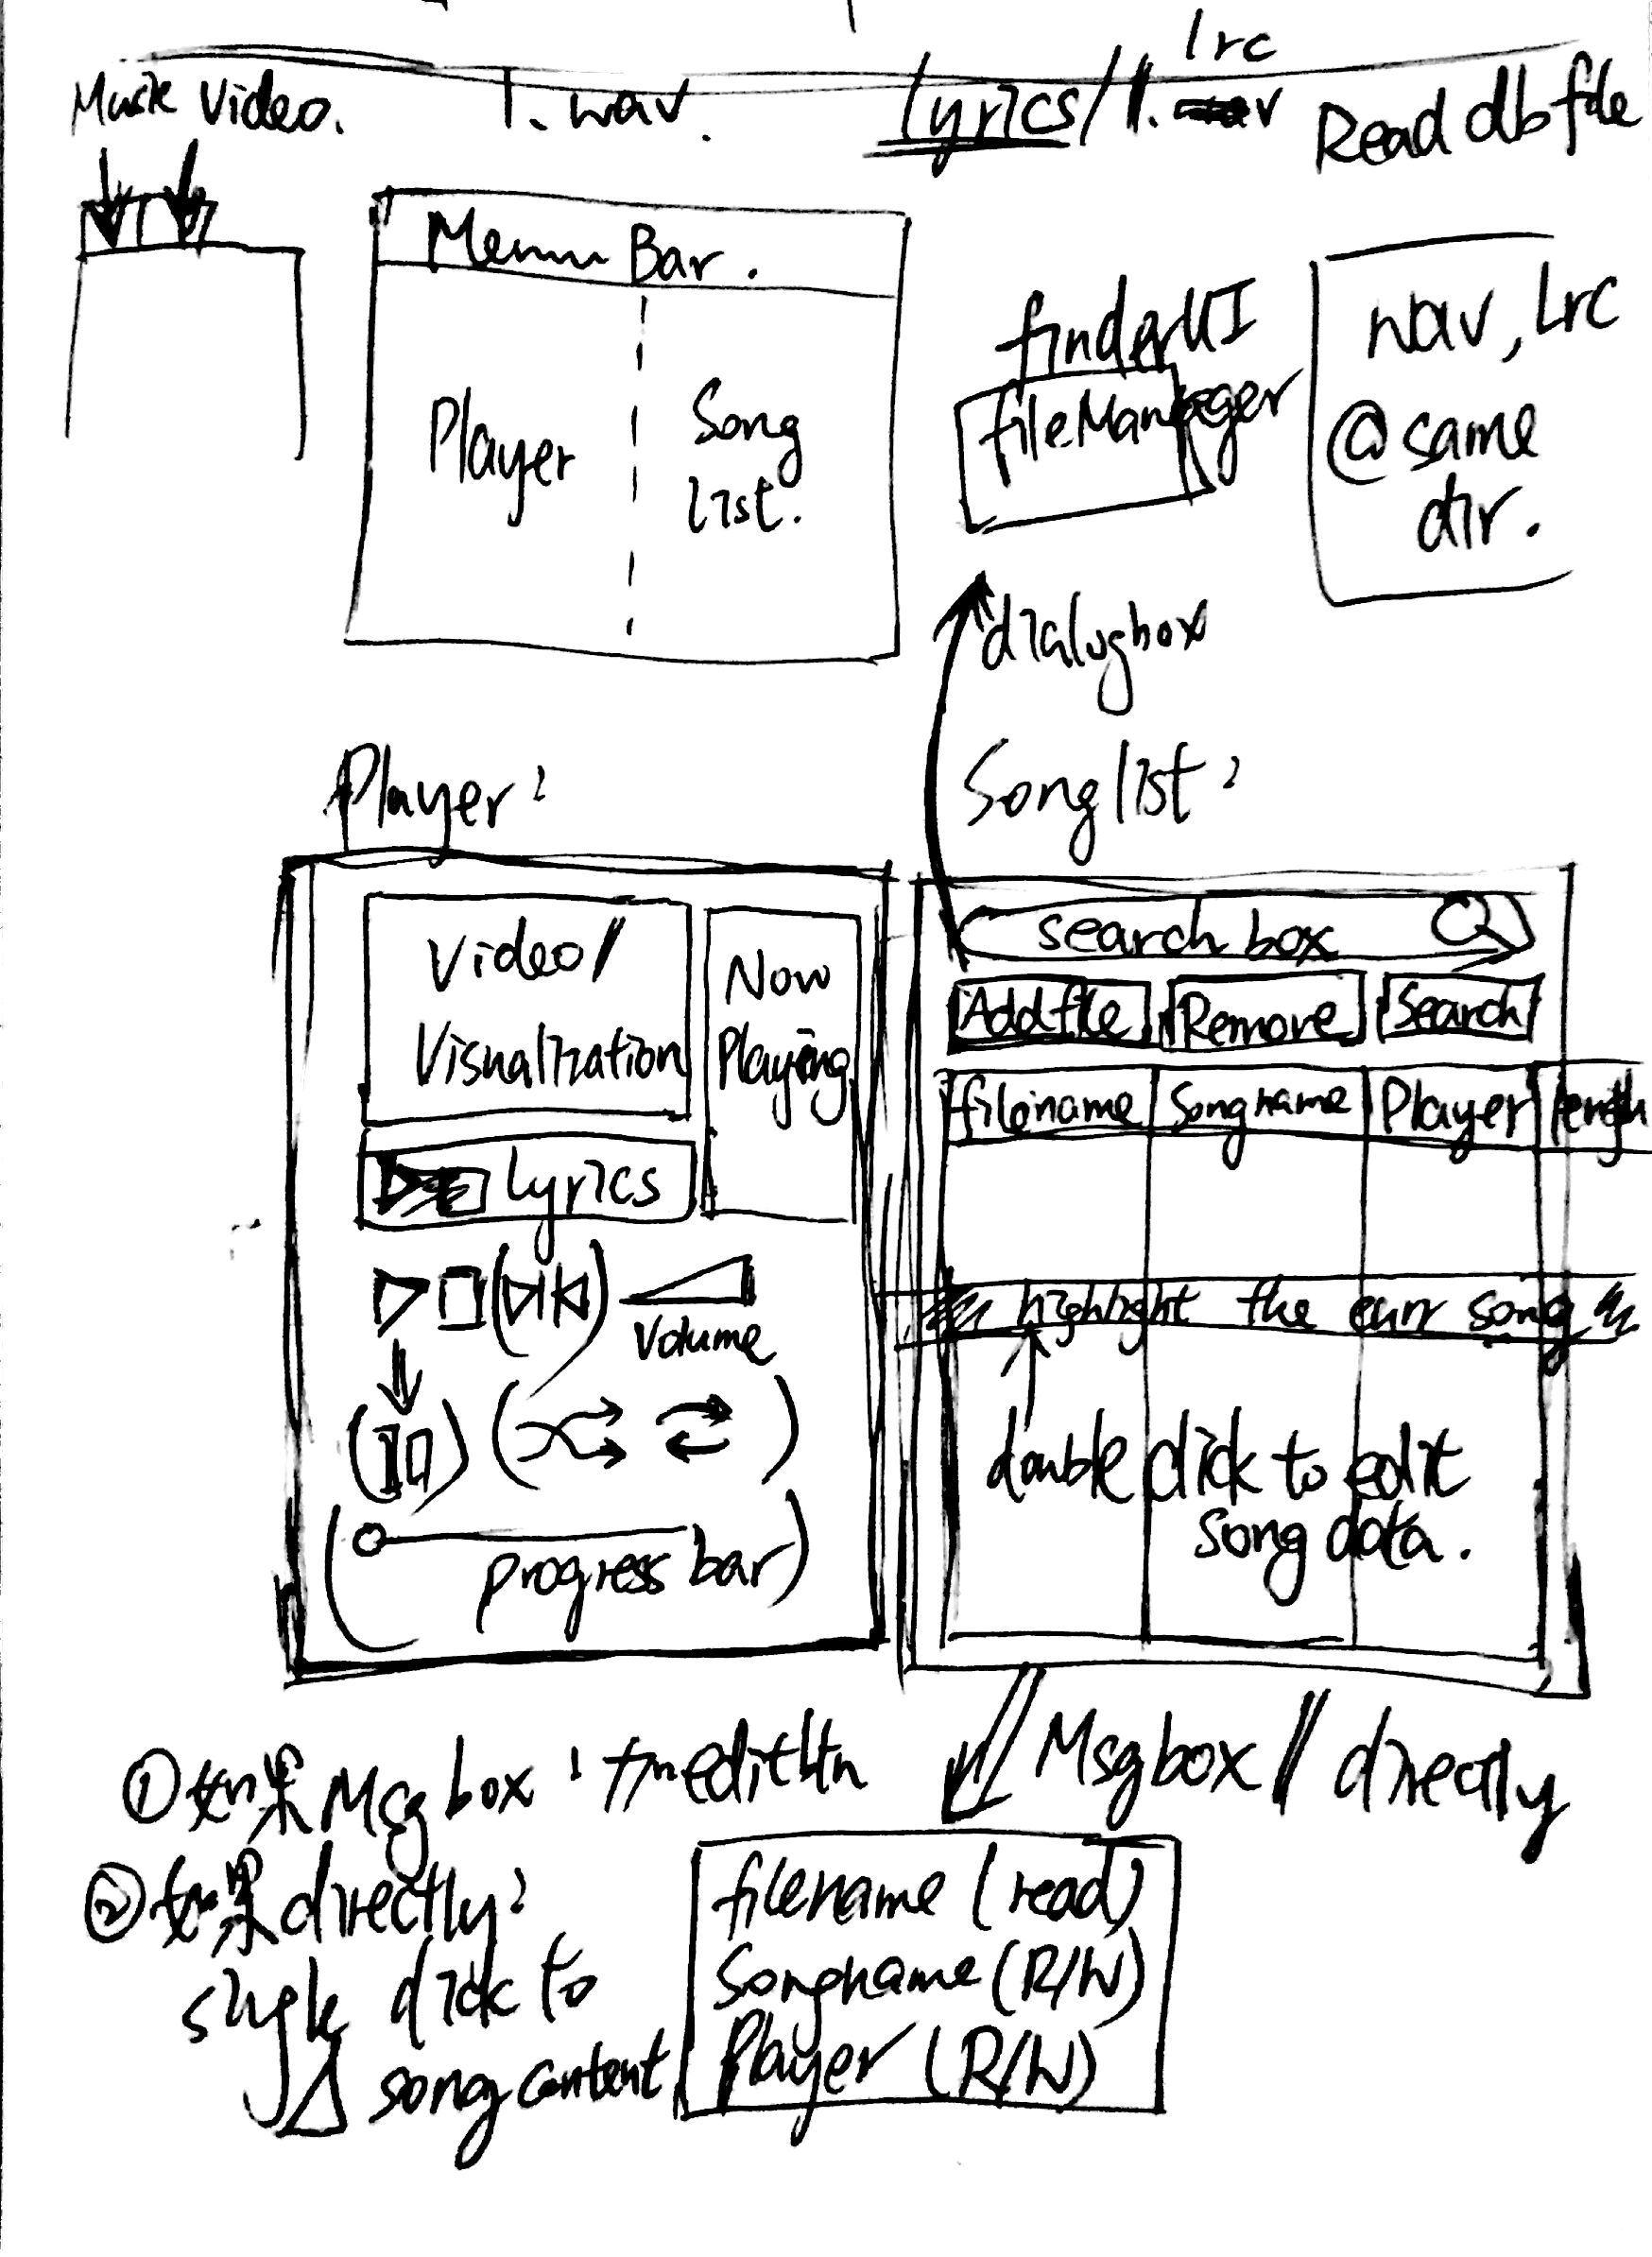 Music Video.
1. wav.
lrc
lyrics/1.
Read db file
Menu Bar.
Player
Song
list.
finderUI
fileManager
wav, lrc
@ same
dir.
dialogbox
Player:
Song list:
Video/
Visualization
Now
Playing
Lyrics
Volume
progress bar
search box
Add file
Remove
Search
filename
Songname
Player
length
highlight the curr song
double click to edit
song data.
Msgbox // directly
①如果Msgbox:
editbtn
②如果directly:
single click to
△ song content
filename (read)
Songname (R/W)
Player (R/W)